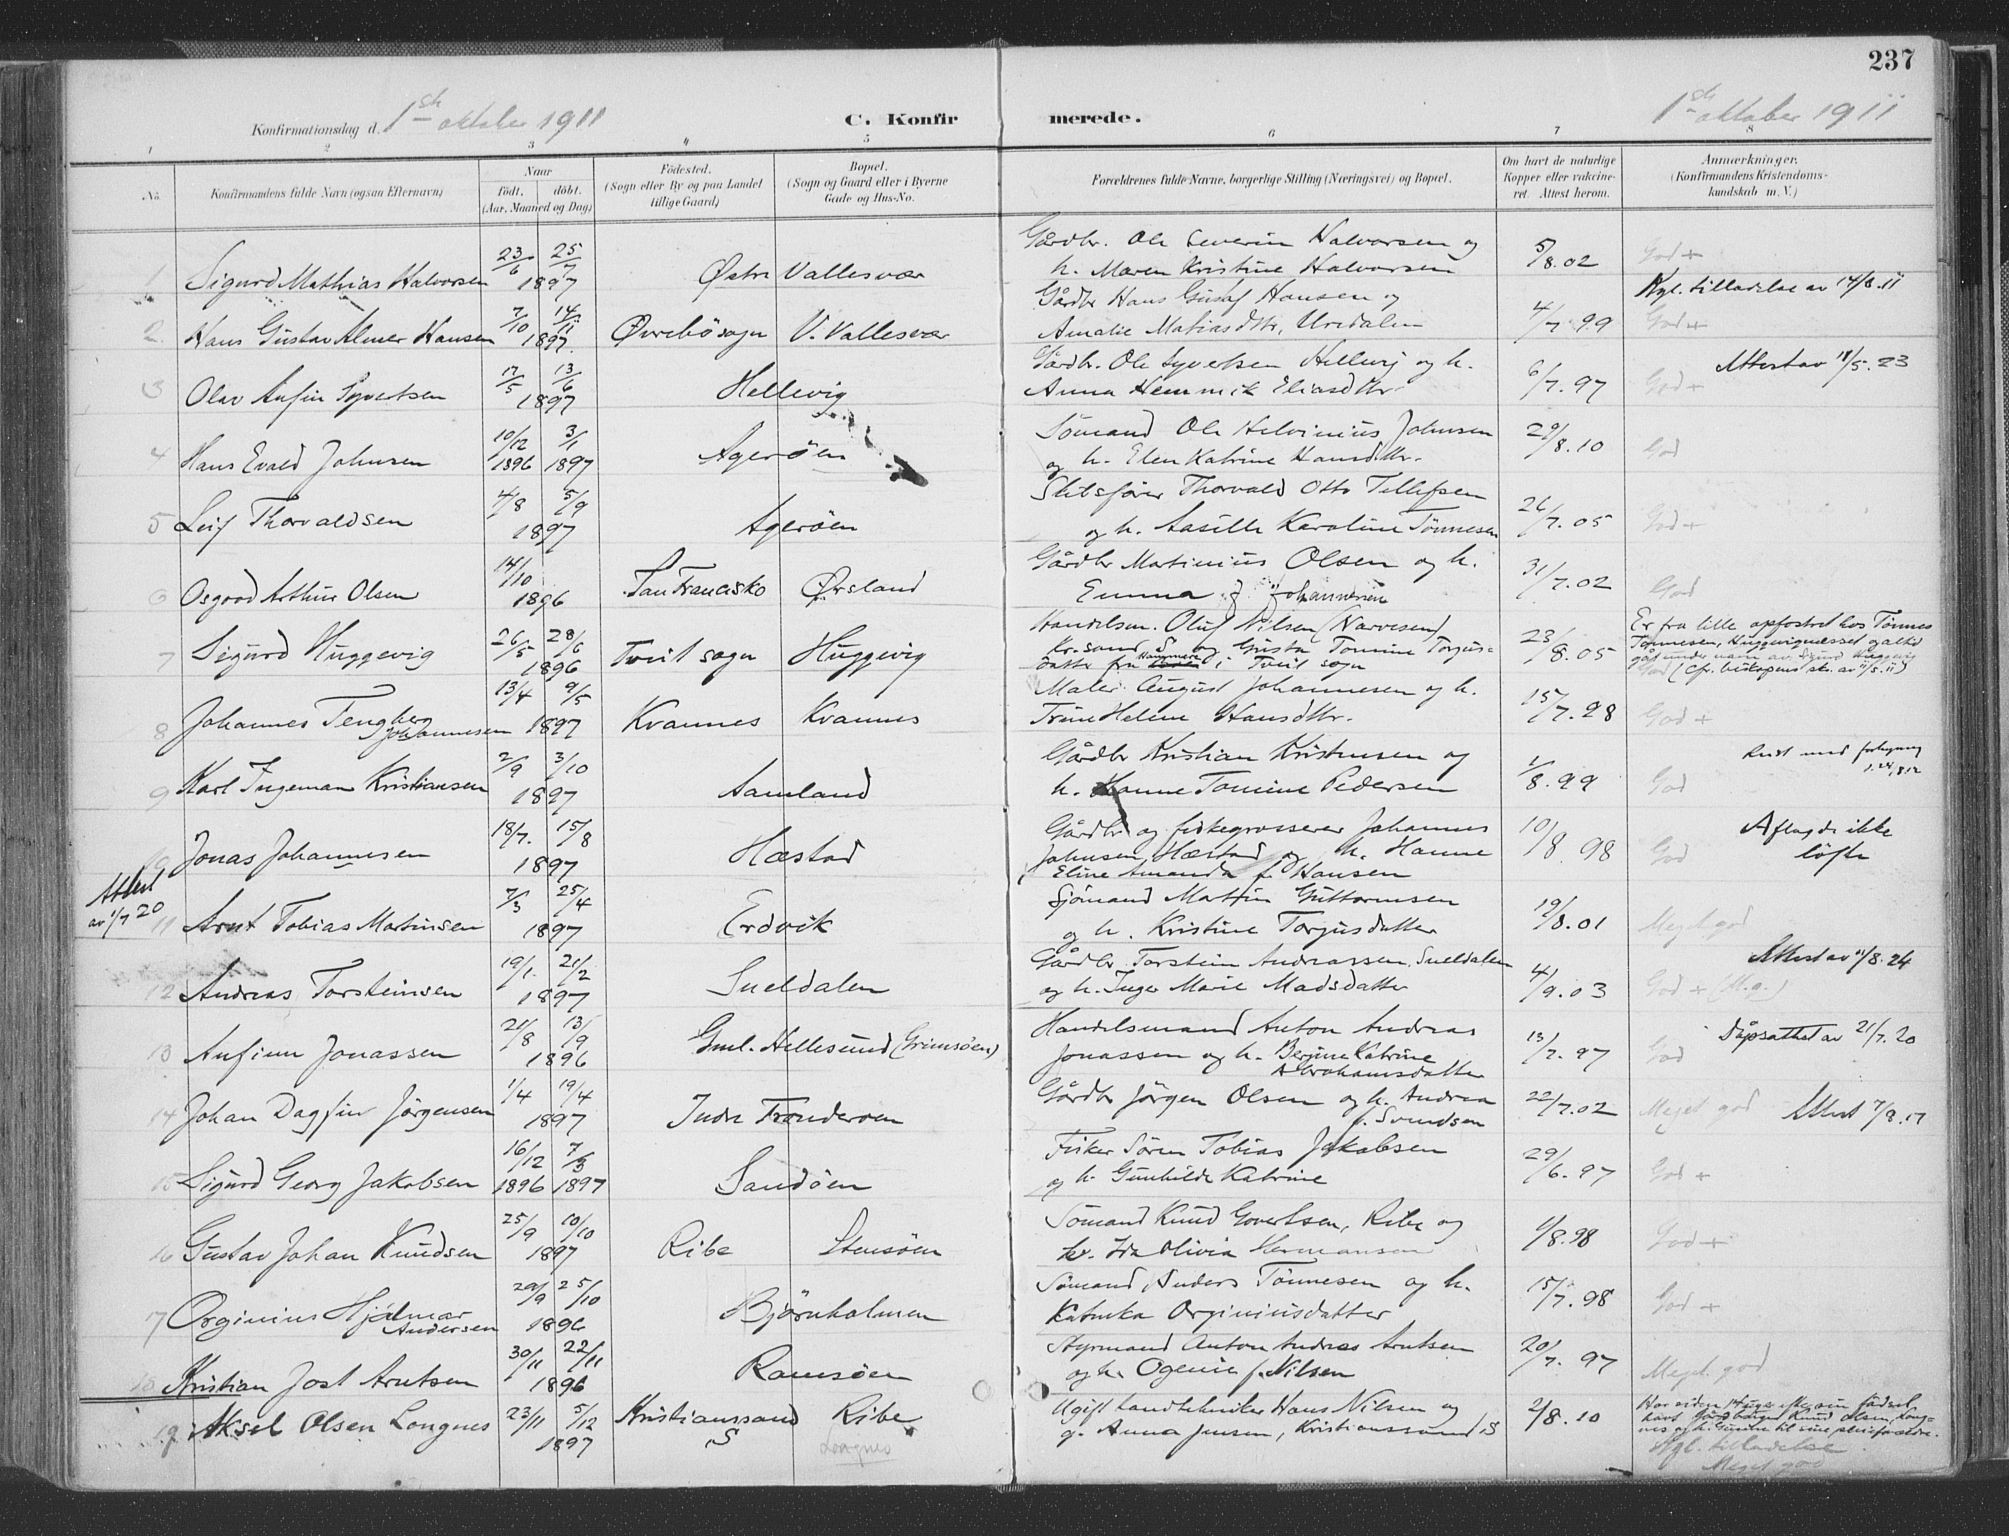 237
Konfirmationsdag d. 1ste oktober 1911
C. Konfirmerede.
1ste oktober 1911
1 2 3 4 5 6 7 8
No.
Konfirmandens fulde Navn (ogsaa Efternavn)
Naar
født. døbt.
(Aar, Maaned og Dag)
Fødested.
(Sogn eller By og paa Landet
tillige Gaard)
Bopæl.
(Sogn og Gaard eller i Byerne
Gade og Hus-No.
Forældrenes fulde Navne, borgerlige Stilling (Næringsvei) og Bopæl.
Om havt de naturlige
Kopper eller vakcine-
ret. Attest herom.
Anmærkninger.
(Konfirmandens Kristendoms-
kundskab m. V.)
1 Sigurd Mathias Halvorsen 23/6 25/7 1897 Østre Vallesvær
Gårdbr. Ole Severin Halvorsen og
h. Maren Kristine Halvorsen 5/8.02 God +
2 Hans Gustav Almer Hansen 7/10 14/11 1897 Øvrebö sogn V. Vallesvær
Gårdbr Hans Gustaf Hansen og
Amalie Matiasdtr, Uredalen 4/7 99 God +
Kgl. tilladelse av 14/8.11
3 Olav Anfin Syvertsen 17/5 13/6 1897 Hellevig
Gårdbr. Ole Syvertsen Hellevig og h.
Anna Hemmik Eliasdtr 6/7.97 God +
Attest av 18/5.23
4 Hans Evald Johnsen 10/12 1896 3/1 1897 Agerøen
Sömand Ole Helvinius Johnsen
og h. Elen Katrine Hansdtr. 29/8.10 God
5 Leif Thorvaldsen 4/8 5/9 1897 Agerøen
Skibsfører Thorvald Otto Tellefsen
og h. Aasille Karoline Tönnesen 26/7.05 God +
6 Osgood Arthur Olsen 14/10 1896 San Francisko Ørsland
Gårdbr Martinius Olsen og h.
Emma f. Johannesen 31/7.02 God
7 Sigurd Huggevig 26/5 28/6 1896 Tveit sogn Huggevig
Handelsm. Oluf Nilsen (Narvesen)
Kr.sand S og Gusta Tomine Torgus=
datter fra i Tveit sogn 23/8.05
Er fra lille opfostret hos Tönnes
Tönnesen, Huggevignesset og altid
gåt under navn av Sigurd Huggevig
God (cfr. biskopens skr. av 11/5.11)
8 Johannes Tengberg Johannesen 13/4 9/5 1897 Kvannes Kvannes
Maler August Johannesen og h.
Trine Helene Hansdtr. 15/7.98 God +
9 Karl Ingeman Kristiansen 2/9 3/10 1897 Aamland
Gårdbr Kristian Kristensen og
h. Hanne Tomine Pedersen 1/8.99 God
10 Jonas Johannesen 18/7. 15/8 1897 Hæstad
Gårdbr og fiskegrosserer Johannes
Johnsen, Hæstad og h. Hanne
Eline Amanda f. Hansen 10/8 98 God
Aflagde ikke
löfte
Attest
av 1/7 20
11 Arnt Tobias Martinsen 7/3 25/4 1897 Erdvik
Sjömand Martin Guttormsen
og h. Kristine Torgusdatter 19/8.01 Meget god
12 Andreas Torsteinsen 19/1. 21/2 1897 Sueldalen
Gårdbr Torstein Andreassen Sueldalen
og h. Inger Marie Madsdatter 4/9.03 God + (M.g.)
Attest av 11/8.24
13 Anfinn Jonassen 21/8 13/9 1896 Gml. Hellesund (Grimsöen)
Handelsmand Anton Andreas
Jonassen og h. Bergine Katrine
Abrahamsdatter 13/7.97 God
Dåpsattest av 21/7.20
14 Johan Dagfin Jörgensen 1/4 19/4 1897 Indre Trønderøen
Gårdbr Jörgen Olsen og h. Andrea
f. Svendsen 22/7.02 Meget god
Attest 7/8.17
15 Sigurd Georg Jakobsen 16/12 1896 7/3 1897 Sandöen
Fisker Sören Tobias Jakobsen
og h. Gunhilde Katrine 29/6.97 God +
16 Gustav Johan Knudsen 25/9 10/10 1897 Ribe Stensöen
Sömand Knud Govertsen, Ribe og
h. Ida Olivia Hermansen 9/8.98 God +
17 Orginius Hjalmar Andersen 20/9 25/10 1896 Björnholmen
Sömand Anders Tönnesen og h.
Katinka Orginiusdatter 15/7.98 God +
18 Kristian Jost Arntsen 30/11 22/11 1896 Ramsöen
Styrmand Anton Andreas Arntsen
og h. Ogenie f. Nilsen 20/7. 97 Meget god
19 Aksel Olsen Longnes 23/11 5/12 1897 Kristianssand S Ribe
Longnes
Ugift Landtekniker Hans Nilsen og
p. Anna Jensen, Kristianssand S 2/8.10
Har siden 14 uger efter sin fødsel
havt Gårdbruger Knud Olsen, Long=
nes og h. til sine pleieforældre.
Kgl. tilladelse
Meget god